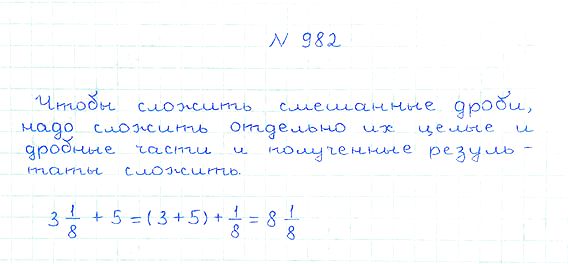 N 982
Чтобы сложить смешанные дроби,
надо сложить отдельно их целые и
дробные части и полученные резуль-
таты сложить.
3 1/8 + 5 = (3 + 5) + 1/8 = 8 1/8